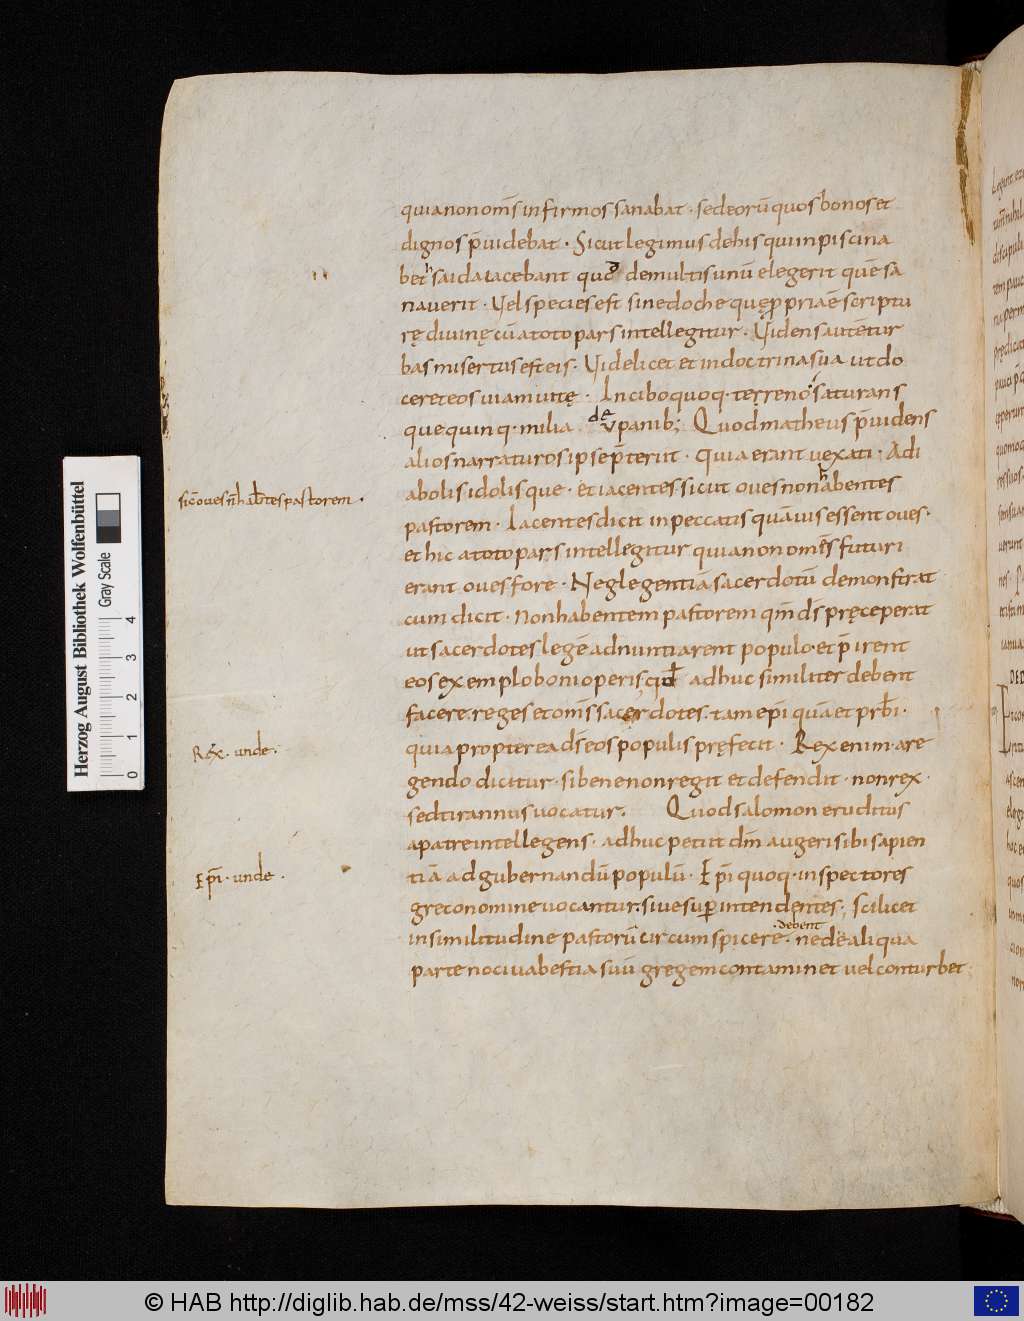 quia non om̄s infirmos sanabat · sed eorū quos bonos et
dignos p̄uidebat · Sicut legimus de his qui in piscina
bethsaida iacebant quo demultis unū elegerit quē sa
nauerit · Vel species est sinedoche quę p̱priae̅ scriptu
rę diuinę cū a toto pars intellegitur · Videns autē tur
bas misertus est eis · Videlicet et in doctrina sua ut do
ceret eos uiam uitę · In cibo quoq· terreno saturans
que quinq· milia de v panib; Quod matheus p̄uidens
alios narraturos ipse p̄teriit · quia erant uexati · A di
abolis idolisque · et iacentes sicut oues non habentes
sic̄ oues n̄ hab̄tes pastorem ·
pastorem · Iacentes dicit in peccatis quāuis essent oues ·
et hic a toto pars intellegitur quia non om̄es futuri
erant oues fore · Neglegentiā sacerdotū demonstrat
cum dicit · non habentem pastorem qm̄ ds̄ pręceperat
ut sacerdotes legē adnuntiarent populo · et p̄irent
eos exemplo boni operis qđ adhuc similiter debent
facere · reges et om̄s sacerdotes · tam ep̄i quā et prb̄i ·
Rex · unde ·
quia propterea ds̄ eos populis pręfecit · Rex enim · a re
gendo dicitur · si bene non regit et defendit · non rex ·
sed tirannus uocatur · Quod salomon eruditus
a patre intellegens · adhuc petiit dm̄ augeri sibi sapien
Ep̄i · unde ·
tiā ad gubernandū populū · Ep̄i quoq· inspectores
greco nomine uocantur · siue sup̱intendentes · scilicet
debent
in similitudine pastorū circumspicere · ne de aliqua
parte nociua bestia suū gregem contaminet uel conturbet
Herzog August Bibliothek Wolfenbüttel
Gray Scale
0 1 2 3 4
© HAB http://diglib.hab.de/mss/42-weiss/start.htm?image=00182